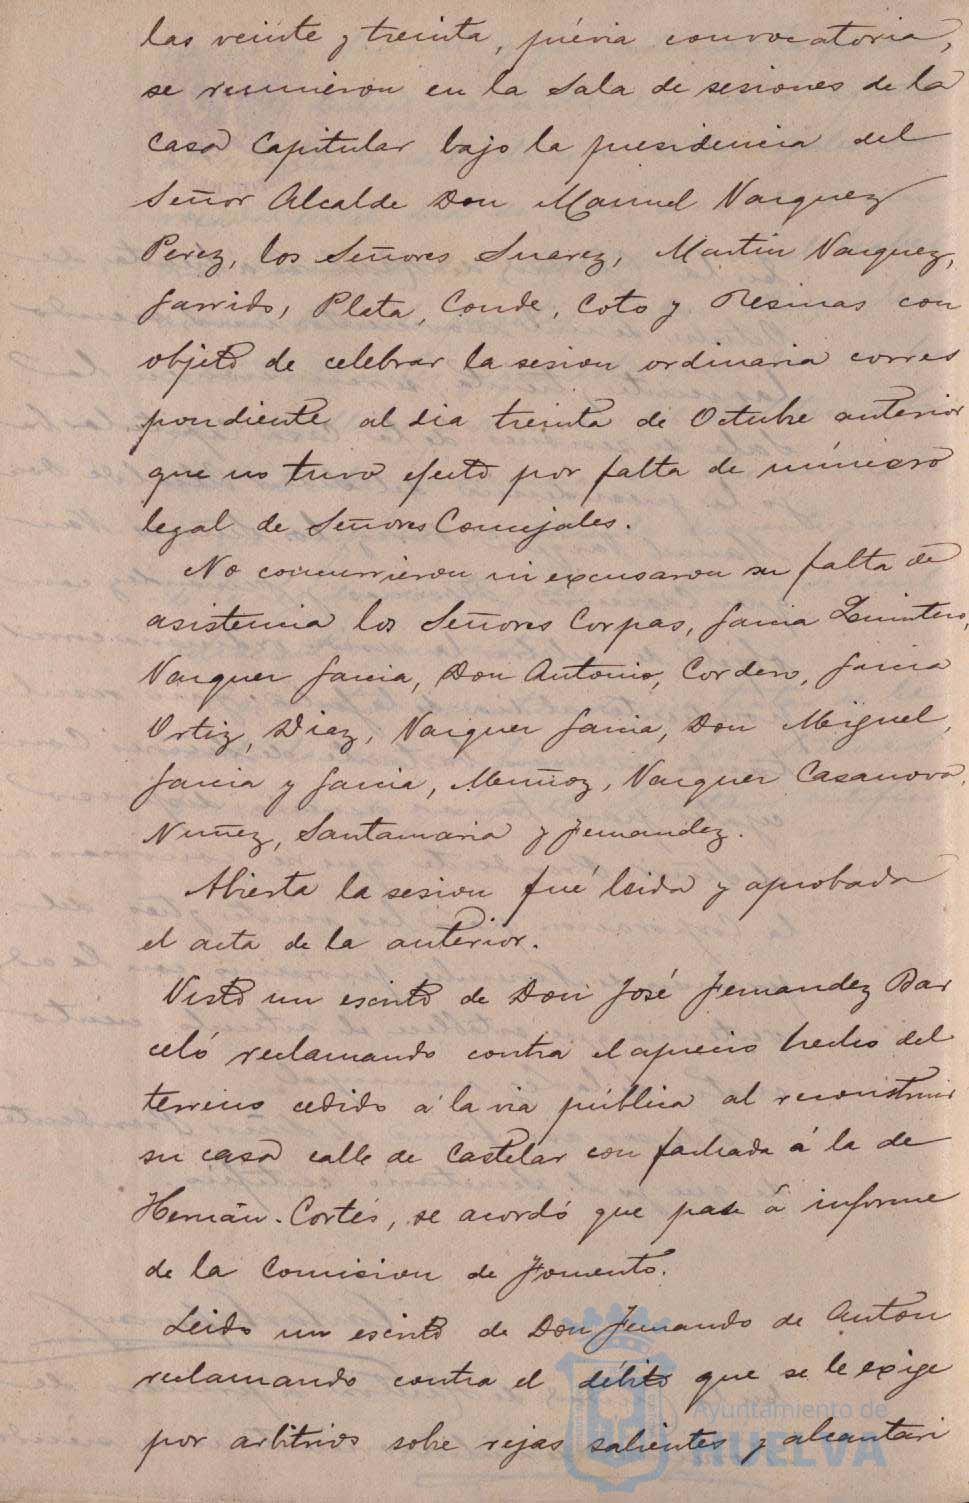 las veinte y treinta, prévia convocatoria,
se reunieron en la Sala de sesiones de la
Casa Capitular bajo la presidencia del
Señor Alcalde Don Manuel Vazquez
Perez, los Señores Suarez, Martin Vazquez,
Garrido, Plata, Conde, Coto y Resinas con
objeto de celebrar la sesion ordinaria corres
pondiente al dia treinta de Octubre anterior
que no tuvo efecto por falta de número
legal de Señores Concejales.
No concurrieron ni excusaron su falta de
asistencia los Señores Corpas, Garcia Quintero,
Vazquez Garcia, Don Antonio, Cordero, Garcia
Ortiz, Diaz, Vazquez Garcia, Don Miguel,
Garcia y Garcia, Muñoz, Vazquez Casanova,
Nuñez, Santamaria y Fernandez.
Abierta la sesion fué leida y aprobada
el acta de la anterior.
Visto un escrito de Don José Fernandez Bar
celó reclamando contra el aprecio hecho del
terreno cedido á la via pública al reconstruir
su casa calle de Castelar con fachada á la de
Hernán-Cortés, se acordó que pase á informe
de la Comision de Fomento.
Leido un escrito de Don Fernando de Anton
reclamando contra el débito que se le exige
por arbitrios sobre rejas salientes y alcantari
Ayuntamiento de
HUELVA